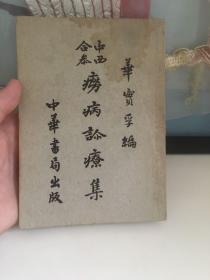 華實孚編
中西合叅
癆病診療集
中華書局出版